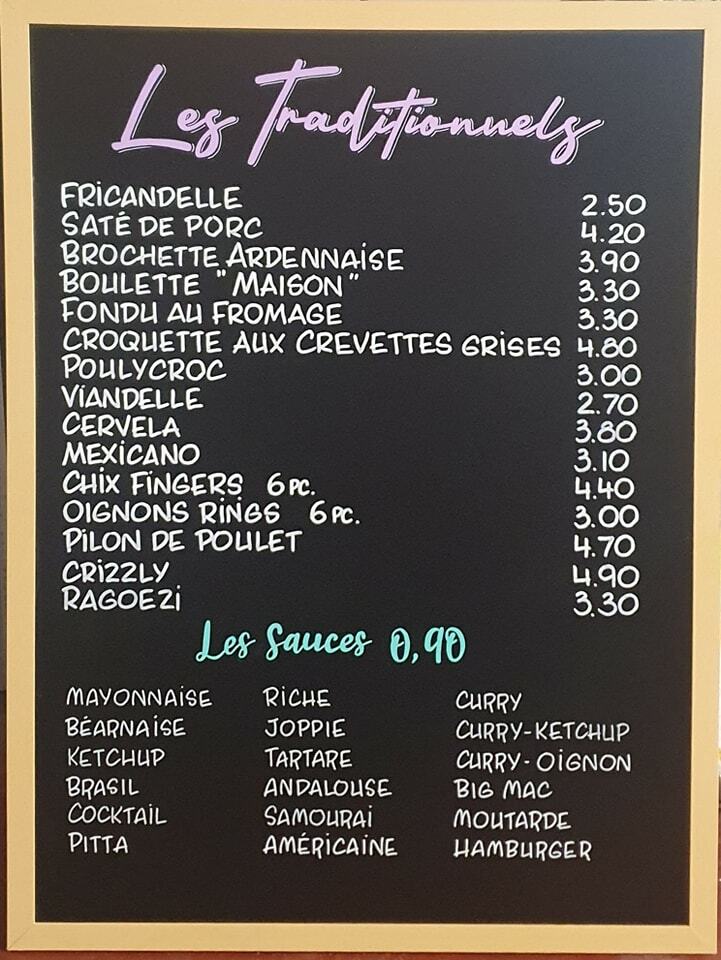 Les Traditionnels
FRICANDELLE 2.50
SATÉ DE PORC 4.20
BROCHETTE ARDENNAISE 3.90
BOULETTE "MAISON" 3.30
FONDU AU FROMAGE 3.30
CROQUETTE AUX CREVETTES GRISES 4.80
POULYCROC 3.00
VIANDELLE 2.70
CERVELA 3.80
MEXICANO 3.10
CHIX FINGERS 6 PC. 4.40
OIGNONS RINGS 6 PC. 3.00
PILON DE POULET 4.70
CRIZZLY 4.90
RAGOEZI 3.30
Les Sauces 0,90
MAYONNAISE RICHE CURRY
BÉARNAISE JOPPIE CURRY-KETCHUP
KETCHUP TARTARE CURRY-OIGNON
BRASIL ANDALOUSE BIG MAC
COCKTAIL SAMOURAI MOUTARDE
PITTA AMÉRICAINE HAMBURGER